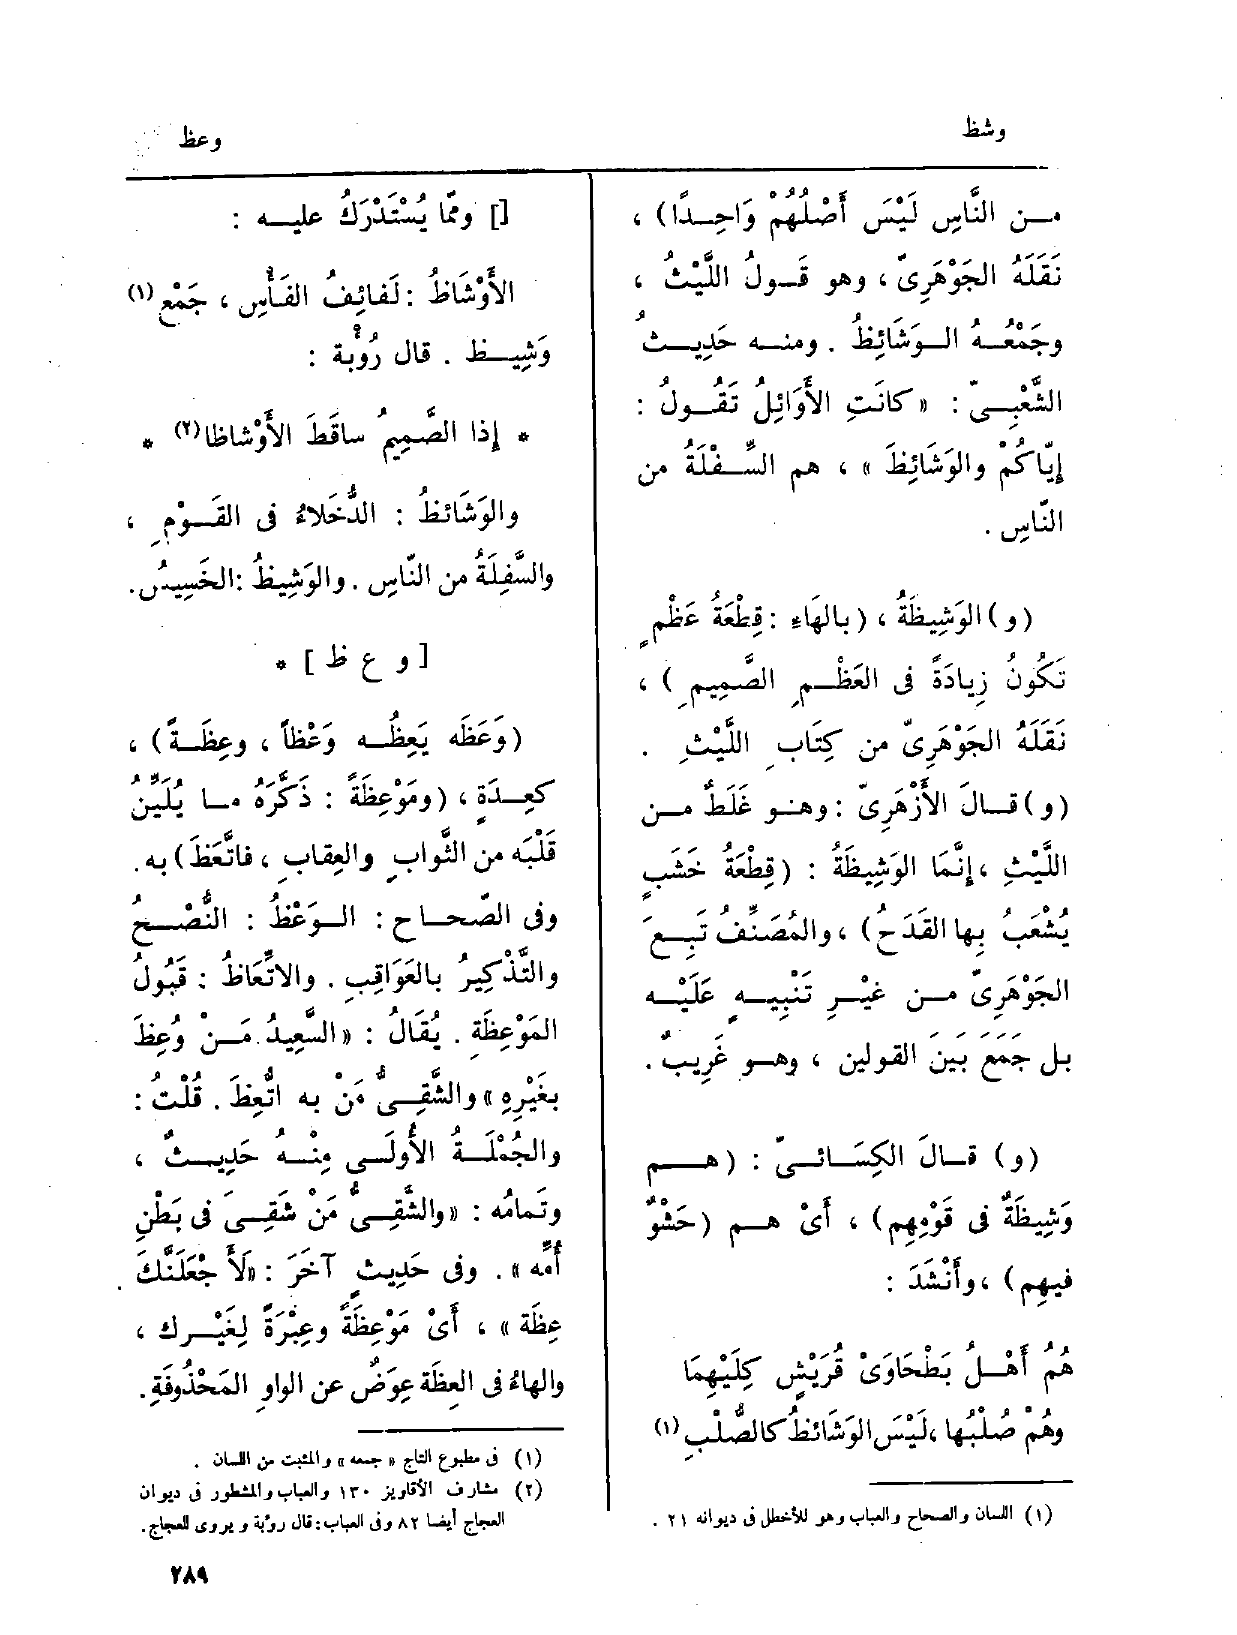 وشظ
وعظ
مــن النَّاسِ لَيْسَ أَصْلُهُمْ وَاحِــدًا) ،
نَقَلَهُ الجَوْهَرِىّ ، وهو قَــولُ اللَّيْثُ ،
وجَمْعُــهُ الــوَشَائِظُ . ومنــه حَدِيــثُ
الشَّعْبِــىّ : « كانَتِ الأَوَائِلُ تَقُــولُ :
إِيّاكُمْ والوَشَائِظَ » ، هم السِّــفْلَةُ من
النّاسِ .
(و) الوَشِيظَةُ ، (بالهَاءِ : قِطْعَةُ عَظْمٍ
تَكُونُ زِيادَةً فى العَظْــمِ الصَّمِيمِ) ،
نَقَلَهُ الجَوْهَرِىّ من كِتَابِ اللَّيْثِ .
(و) قــالَ الأَزْهَرِىّ : وهــو غَلَطٌ مــن
اللَّيْثِ ، إِنَّمَا الوَشِيظَةُ : (قِطْعَةُ خَشَبٍ
يُشْعَبُ بِها القَدَحُ) ، والمُصَنِّفُ تَبِــعَ
الجَوْهَرِىّ مــن غيْــرِ تَنْبِيــهٍ عَلَيْــه
بل جَمَعَ بَينَ القولين ، وهــو غَرِيبٌ .
(و) قــالَ الكِسَــائــىّ : (هــــم
وَشِيظَةٌ فى قَوْمِهِم) ، أَىْ هــم (حَشْوٌ
فيهِم) ، وأَنْشَدَ :
هُمُ أَهْــلُ بَطْحَاوَىْ قُرَيْشٍ كِلَيْهِمَا
وهُمْ صُلْبُها ، لَيْسَ الوَشَائظُ كالصُّلْبِ (١)
(١) اللسان والصحاح والعباب وهو للأخطل فى ديوانه ٢١ .
[] وممّا يُسْتَدْرَكُ عليــه :
الأَوْشَاظُ : لَفائِفُ الفَأْسِ ، جَمْع (١)
وَشِيــظ . قال رُؤْبة :
* إذا الصَّمِيمُ ساقَطَ الأَوْشاظا (٢) *
والوَشَائظُ : الدُّخَلاءُ فى القَــوْمِ ،
والسَّفِلَةُ من النّاسِ . والوَشِيظُ : الخَسِيسُ .
[ و ع ظ ] *
(وَعَظَه يَعِظُــه وَعْظاً ، وعِظَــةً) ،
كعِــدَةٍ ، (ومَوْعِظَةً : ذَكَّرَهُ مــا يُلَيِّنُ
قَلْبَه من الثَّوابِ والعِقابِ ، فاتَّعَظَ) به .
وفى الصّحــاح : الــوَعْظُ : النُّصْــحُ
والتَّذْكِيرُ بالعَوَاقِبِ . والاتِّعَاظُ : قَبُولُ
المَوْعِظَةِ . يُقَالُ : «السَّعِيدُ مَــنْ وُعِظَ
بغَيْرِهِ » والشَّقِــىُّ مَنْ به اتُّعِظَ . قُلْتُ :
والجُمْلَــةُ الأُولَــى مِنْــهُ حَدِيــثٌ ،
وتَمامُه : «والشَّقِــىُّ مَنْ شَقِــىَ فى بَطْنِ
أُمِّه » . وفى حَدِيثٍ آخَرَ : «لَأَجْعَلَنَّكَ
عِظَة » ، أَىْ مَوْعِظَةً وعِبْرَةً لِغَيْــرِك ،
والهاءُ فى العِظَة عِوَضٌ عن الواو المَحْذُوفَةِ .
(١) فى مطبوع التاج « جمعه » والمثبت من اللسان .
(٢) مشارف الأقاويز ١٣٠ والعباب والمشطور فى ديوان
العجاج أيضا ٨٢ وفى العباب : قال رؤبة ويروى للعجاج .
٢٨٩